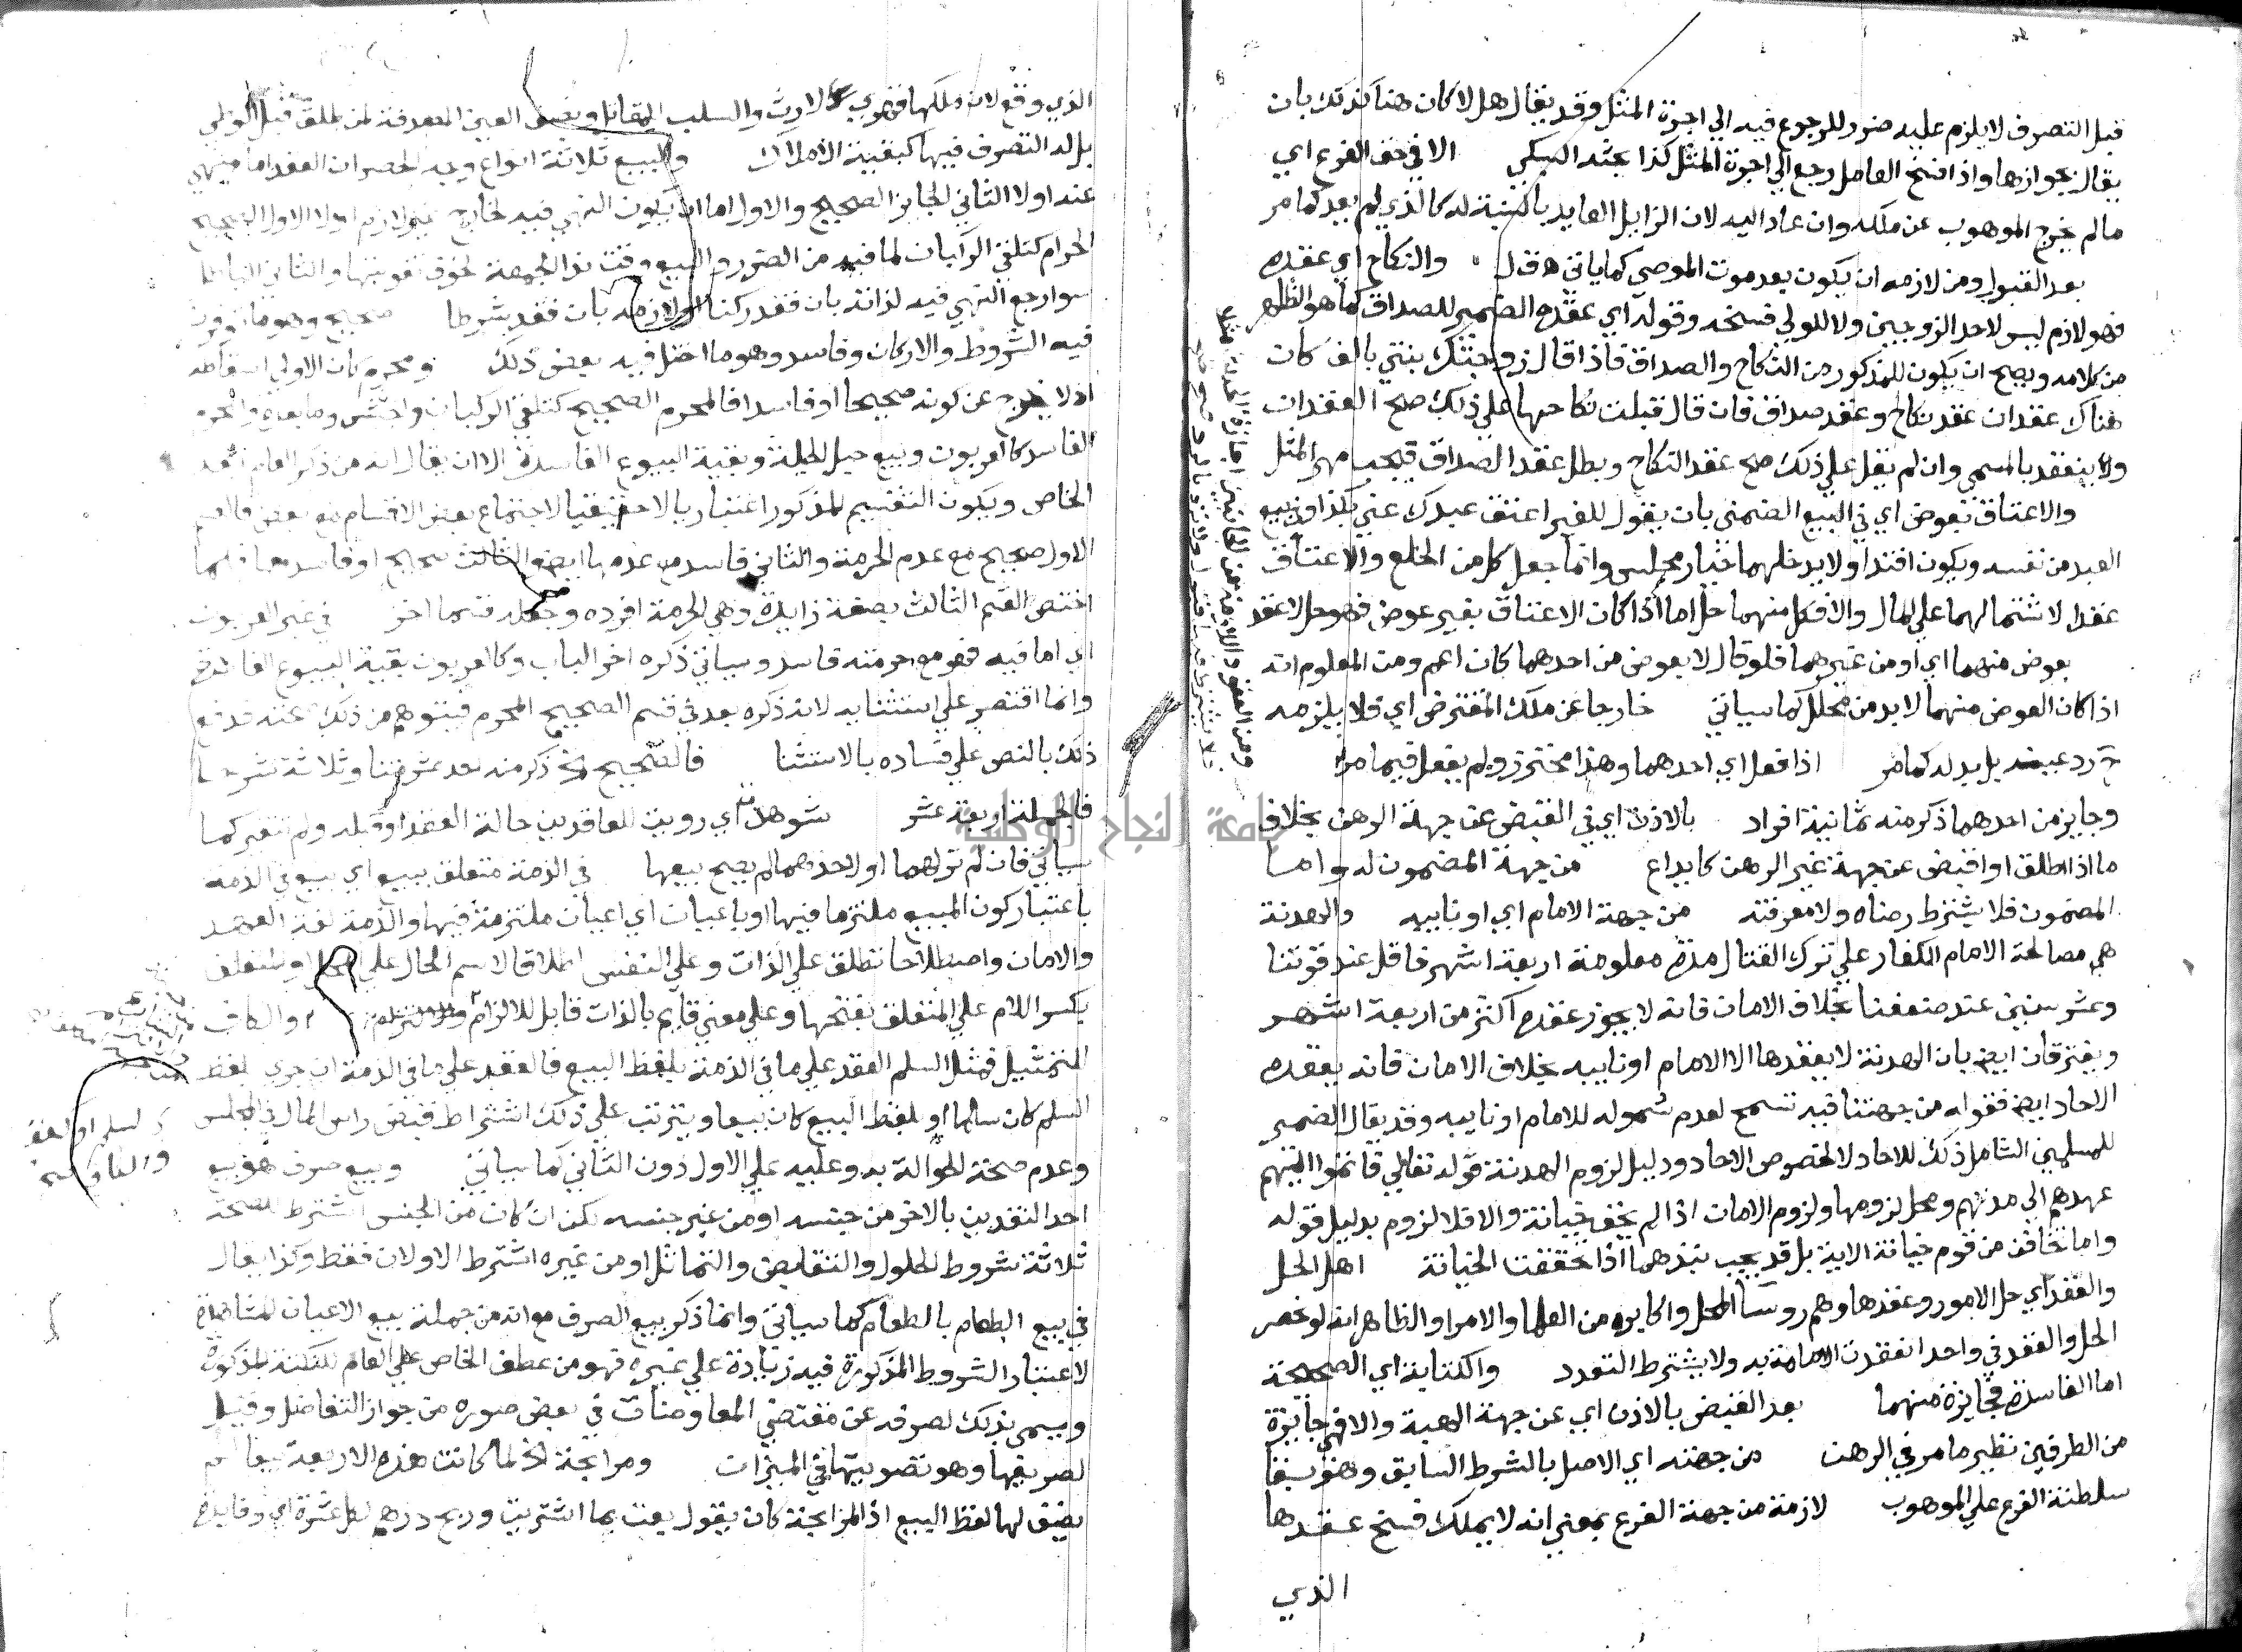 قبل التصرف لا يلزم عليه ضرر للرجوع فيه الي اجرة المثل وقد يقال هل لا كان هنا كذلك بان
يقال بجوازها واذا فسخ العامل رجع الي اجرة المثل كذا بحثه السبكي الا في حق الفرع اي
ما لم يخرج الموهوب عن ملكه وان عاد اليه لان الزايل العايد بالنسبة له كالذي لم يعد كما مر
بعد القبول ومن لازمه ان يكون بعد موت الموصي كما ياتي والنكاح اي عقده
فهو لازم ليس لاحد الزوجين ولا للولي فسخه وقوله اي عقده الضمير للصداق كما هو الظاهر
من كلامه ويصح ان يكون للمذكور من النكاح والصداق فاذا قال زوجتك بنتي بالف كان
هناك عقدان عقد نكاح وعقد صداق فان قال قبلت نكاحها علي ذلك صح العقدان
ولا ينعقد بالمسمي وان لم يقل علي ذلك صح عقد النكاح وبطل عقد الصداق فيجب مهر المثل
والاعتاق بعوض اي في البيع الضمني بان يقول للغير اعتق عبدك عني بكذا او يبيع
العبد من نفسه ويكون افتدا ولا يدخلهما خيار مجلس وانما جعل كل من الخلع والاعتاق
عقدا لاشتمالهما علي المال والا فكل منهما حل اما اذا كان الاعتاق بغير عوض فهو حل لا عقد
بعوض منهما اي او من غيرهما فلو قال لا بعوض من احدهما كان اعم ومن المعلوم انه
اذا كان العوض منهما لا بد من محلل كما سياتي خارجا عن ملك المقترض اي فلا يلزمه
رد عينه بل بدله كما مر اذا فعل اي احدهما وهذا محترز ولم يفعل فيما مر
وجايز من احدهما ذكر منه ثمانية افراد بالاذن اي في القبض عن جهة الرهن بخلاف
ما اذا اطلق او اقبض عن جهة غير الرهن كايداع من جهة المضمون له واما
المضمون فلا يشترط رضاه ولا معرفته من جهة الامام اي او نايبه والهدنة
هي مصالحة الامام الكفار علي ترك القتال مدة معلومة اربعة اشهر فاقل عند قوتنا
وعشر سنين عند ضعفنا بخلاف الامان فانه لا يجوز عقده اكثر من اربعة اشهر
ويفترقان ايضا بان الهدنة لا يعقدها الا الامام او نايبه بخلاف الامان فانه يعقده
الاحاد ايضا فقوله من جهتنا فيه تسمح لعدم شموله للامام او نايبه وقد يقال الضمير
للمسلمين الشامل ذلك للاحاد لا لخصوص الاحاد ودليل لزوم الهدنة قوله تعالي فاتموا اليهم
عهدهم الي مدتهم ومحل لزومها ولزوم الامان اذا لم يخف خيانة والا فلا لزوم بدليل قوله
واما تخافن من قوم خيانة الاية بل قد يجب نبذهما اذا تحققت الخيانة اهل الحل
والعقد اي حل الامور وعقدها وهم روسا المحل واكابره من العلما والامرا والظاهر انه لو حصر
الحل والعقد في واحد انعقدت الامامة به ولا يشترط التعدد والكتابة اي الصحيحة
اما الفاسدة فجايزة منهما بعد القبض بالاذن اي عن جهة الهبة والا فهي جايزة
من الطرفين نظير ما مر في الرهن من جهته اي الاصل بالشرط السابق وهو بقا
سلطنة الفرع علي الموهوب لازمة من جهة الفرع بمعني انه لا يملك فسخ عقدها
الذي
الذي وقع لان ملكها قهري كالارث والسلب للمقاتل
بل له التصرف فيها كبقية الاملاك والبيع ثلاثة انواع وجه الحصر ان العقد اما منهي
عنه اولا الثاني الجايز الصحيح والاول اما ان يكون النهي فيه لخارج غير لازم اولا الاول الصحيح
الحرام كتلقي الركبان لما فيه من الضرر والبيع وقت ندا الجمعة لخوف تفويتها والثاني الباطل
سوا رجع النهي فيه لذاته بان فقد ركنا او لازمه بان فقد شرطا صحيح وهو ما توفرت
فيه الشروط والاركان وفاسد وهو ما اختل فيه بعض ذلك ومحرم كان الاولي اسقاطه
اذ لا يخرج عن كونه صحيحا او فاسدا فالمحرم الصحيح كتلقي الركبان والنجش وما بعده والمحرم
الفاسد كالعربون وبيع حبل الحبلة وبقية البيوع الفاسدة الا ان يقال انه من ذكر العام بعد
الخاص ويكون التقسيم المذكور اعتباريا لا حقيقيا لاجتماع بعض الاقسام مع بعض فالقسم
الاول صحيح مع عدم الحرمة والثاني فاسد مع عدمها ايضا والثالث صحيح او فاسد معها فلما
اختص القسم الثالث بصفة زايدة وهي الحرمة افرده وجعله قسما اخر في غير العربون
اي اما فيه فهو مع حرمته فاسد وسياتي ذكره اخر الباب وكالعربون بقية البيوع الفاسدة
وانما اقتصر علي استثنايه لانه ذكره بعد في قسم الصحيح المحرم فيتوهم من ذلك صحته فدفع
ذلك بالنص علي فساده بالاستثنا فالصحيح الخ ذكر منه احد عشر وثلاثة شرحا
فالجملة اربعة عشر شوهدت اي رويت للعاقدين حالة العقد او قبله ولم تتغير كما
سياتي فان لم تر لهما او لاحدهما لم يصح بيعها في الذمة متعلق ببيع اي بيع في الذمة
باعتبار كون المبيع ملتزما فيها او باعيان اي اعيان ملتزمة فيها والذمة لغة العهد
والامان واصطلاحا تطلق علي الذات وعلي النفس اطلاقا لاسم الحال علي المحل او المتعلق
بكسر اللام علي المتعلق بفتحها وعلي معني قايم بالذات قابل للالزام والالتزام والكاف
للتمثيل فمثل السلم العقد علي ما في الذمة بلفظ البيع فالعقد علي ما في الذمة ان جري بلفظ
السلم كان سلما او بلفظ البيع كان بيعا ويترتب علي ذلك اشتراط قبض راس المال في المجلس
وعدم صحة الحوالة به وعليه علي الاول دون الثاني كما سياتي وبيع صرف هو بيع
احد النقدين بالاخر من جنسه او من غير جنسه لكن ان كان من الجنس اشترط للصحة
ثلاثة شروط الحلول والتقابض والتماثل او من غيره اشترط الاولان فقط وكذا يقال
في بيع الطعام بالطعام كما سياتي وانما ذكر بيع الصرف مع انه من جملة بيع الاعيان المشاهدة
لاعتبار الشروط المذكورة فيه زيادة علي غيره فهو من عطف الخاص علي العام للنكتة المذكورة
ويسمي بذلك لصرفه عن مقتضي المعاوضات في بعض صوره من جواز التفاضل وقيل
لصريفها وهو تصويتها في الميزان ومرابحة الخ لما كانت هذه الاربعة بيعا لم
يضف لها لفظ البيع اذ المرابحة كان يقول بعت بما اشتريت وربح درهم لكل عشرة اي وفايدة
جامعة النجاح الوطنية